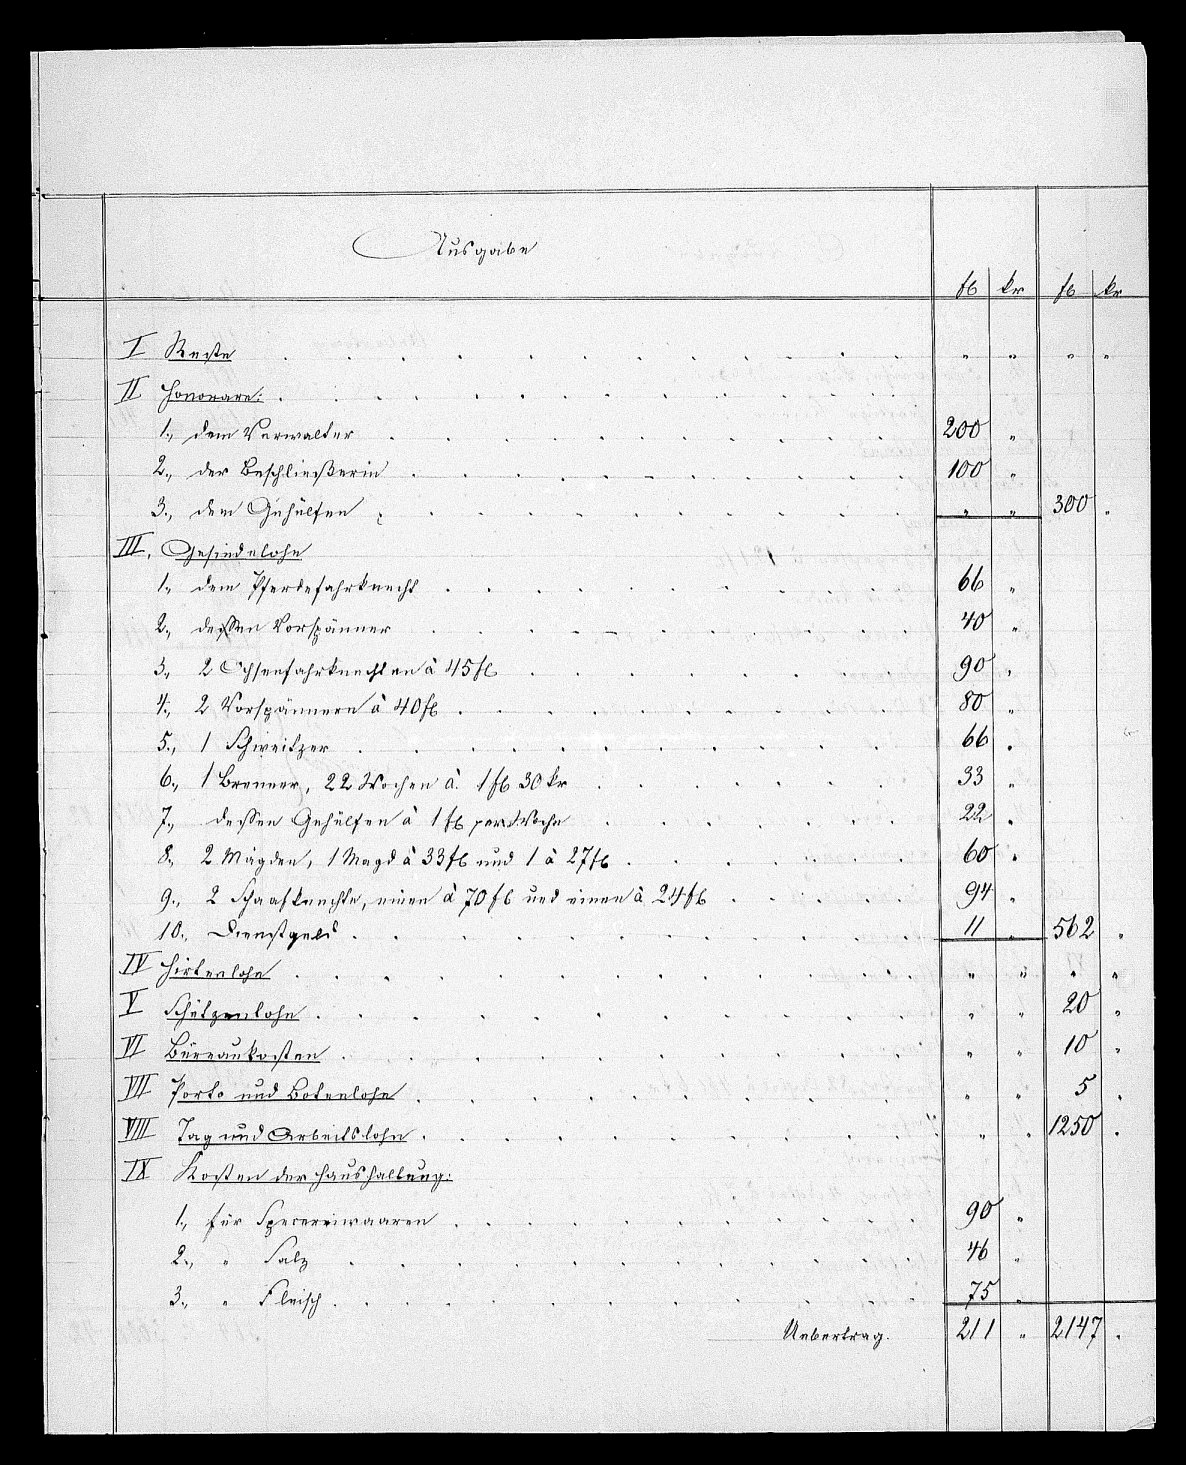 Ausgabe
fl kr fl kr
I Reste " " " "
II Honorare:
1., dem Verwalter 200 "
2., der Beschließerin 100 "
3., dem Gehülfen " " 300 "
III. Gesindelohn
1., dem Pferdefahrknecht 66 "
2., dessen Vorspänner 40 "
3., 2 Ochsenfahrknechten à 45 fl 90 "
4., 2 Vorspännern à 40 fl 80 "
5., 1 Schweitzer 66 "
6., 1 Brenner, 22 Wochen à 1 fl 30 kr 33 "
7., dessen Gehülfen à 1 fl per Woche 22 "
8., 2 Mägden, 1 Magd à 33 fl und 1 à 27 fl 60 "
9., 2 Schaafknechte, einen à 70 fl und einen à 24 fl 94 "
10., Dienstgeld 11 " 562 "
IV Hirtenlohn " " " "
V Schützenlohn " " 20 "
VI Büreaukosten " " 10 "
VII Porto und Botenlohn " " 5 "
VIII Tag und Arbeitslohn " " 1250 "
IX Kosten der Haushaltung:
1., für Specereiwaaren 90 "
2., " Salz 46 "
3., " Fleisch 75 "
Uebertrag. 211 " 2147 "